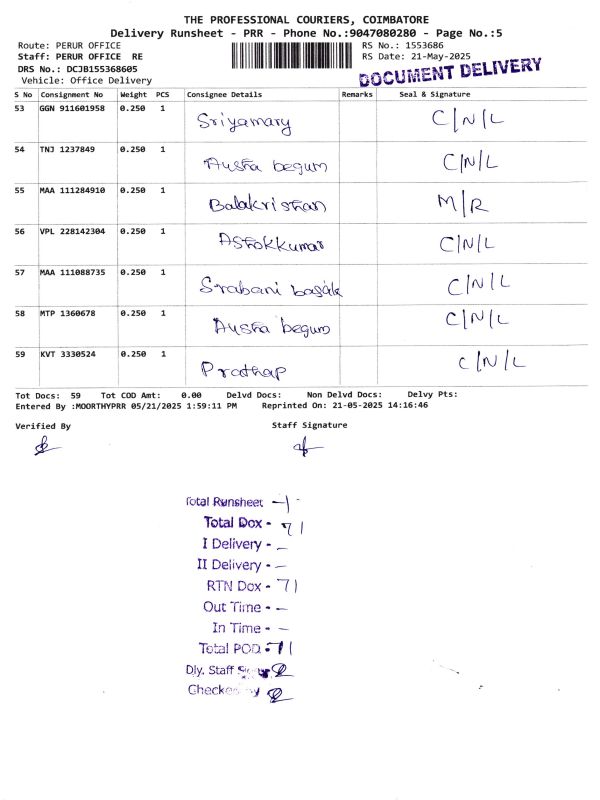 THE PROFESSIONAL COURIERS, COIMBATORE
Delivery Runsheet - PRR - Phone No.:9047080280 - Page No.:5
Route: PERUR OFFICE
RS No.: 1553686
Staff: PERUR OFFICE RE
RS Date: 21-May-2025
DRS No.: DCJB155368605
Vehicle: Office Delivery
DOCUMENT DELIVERY
S No Consignment No Weight PCS Consignee Details Remarks Seal & Signature
53 GGN 911601958 0.250 1 Sriyamary C/N/L
54 TNJ 1237849 0.250 1 Aysha begum C/N/L
55 MAA 111284910 0.250 1 Balakrishan M/R
56 VPL 228142304 0.250 1 Ashokkumar C/N/L
57 MAA 111088735 0.250 1 Srabani basak C/N/L
58 MTP 1360678 0.250 1 Aysha begum C/N/L
59 KVT 3330524 0.250 1 Prathap C/N/L
Tot Docs: 59 Tot COD Amt: 0.00 Delvd Docs: Non Delvd Docs: Delvy Pts:
Entered By :MOORTHYPRR 05/21/2025 1:59:11 PM Reprinted On: 21-05-2025 14:16:46
Verified By Staff Signature
Total Runsheet
Total Dox - 71
I Delivery - -
II Delivery - -
RTN Dox - 71
Out Time - -
In Time - -
Total POD - 71
Dly. Staff
Checked by